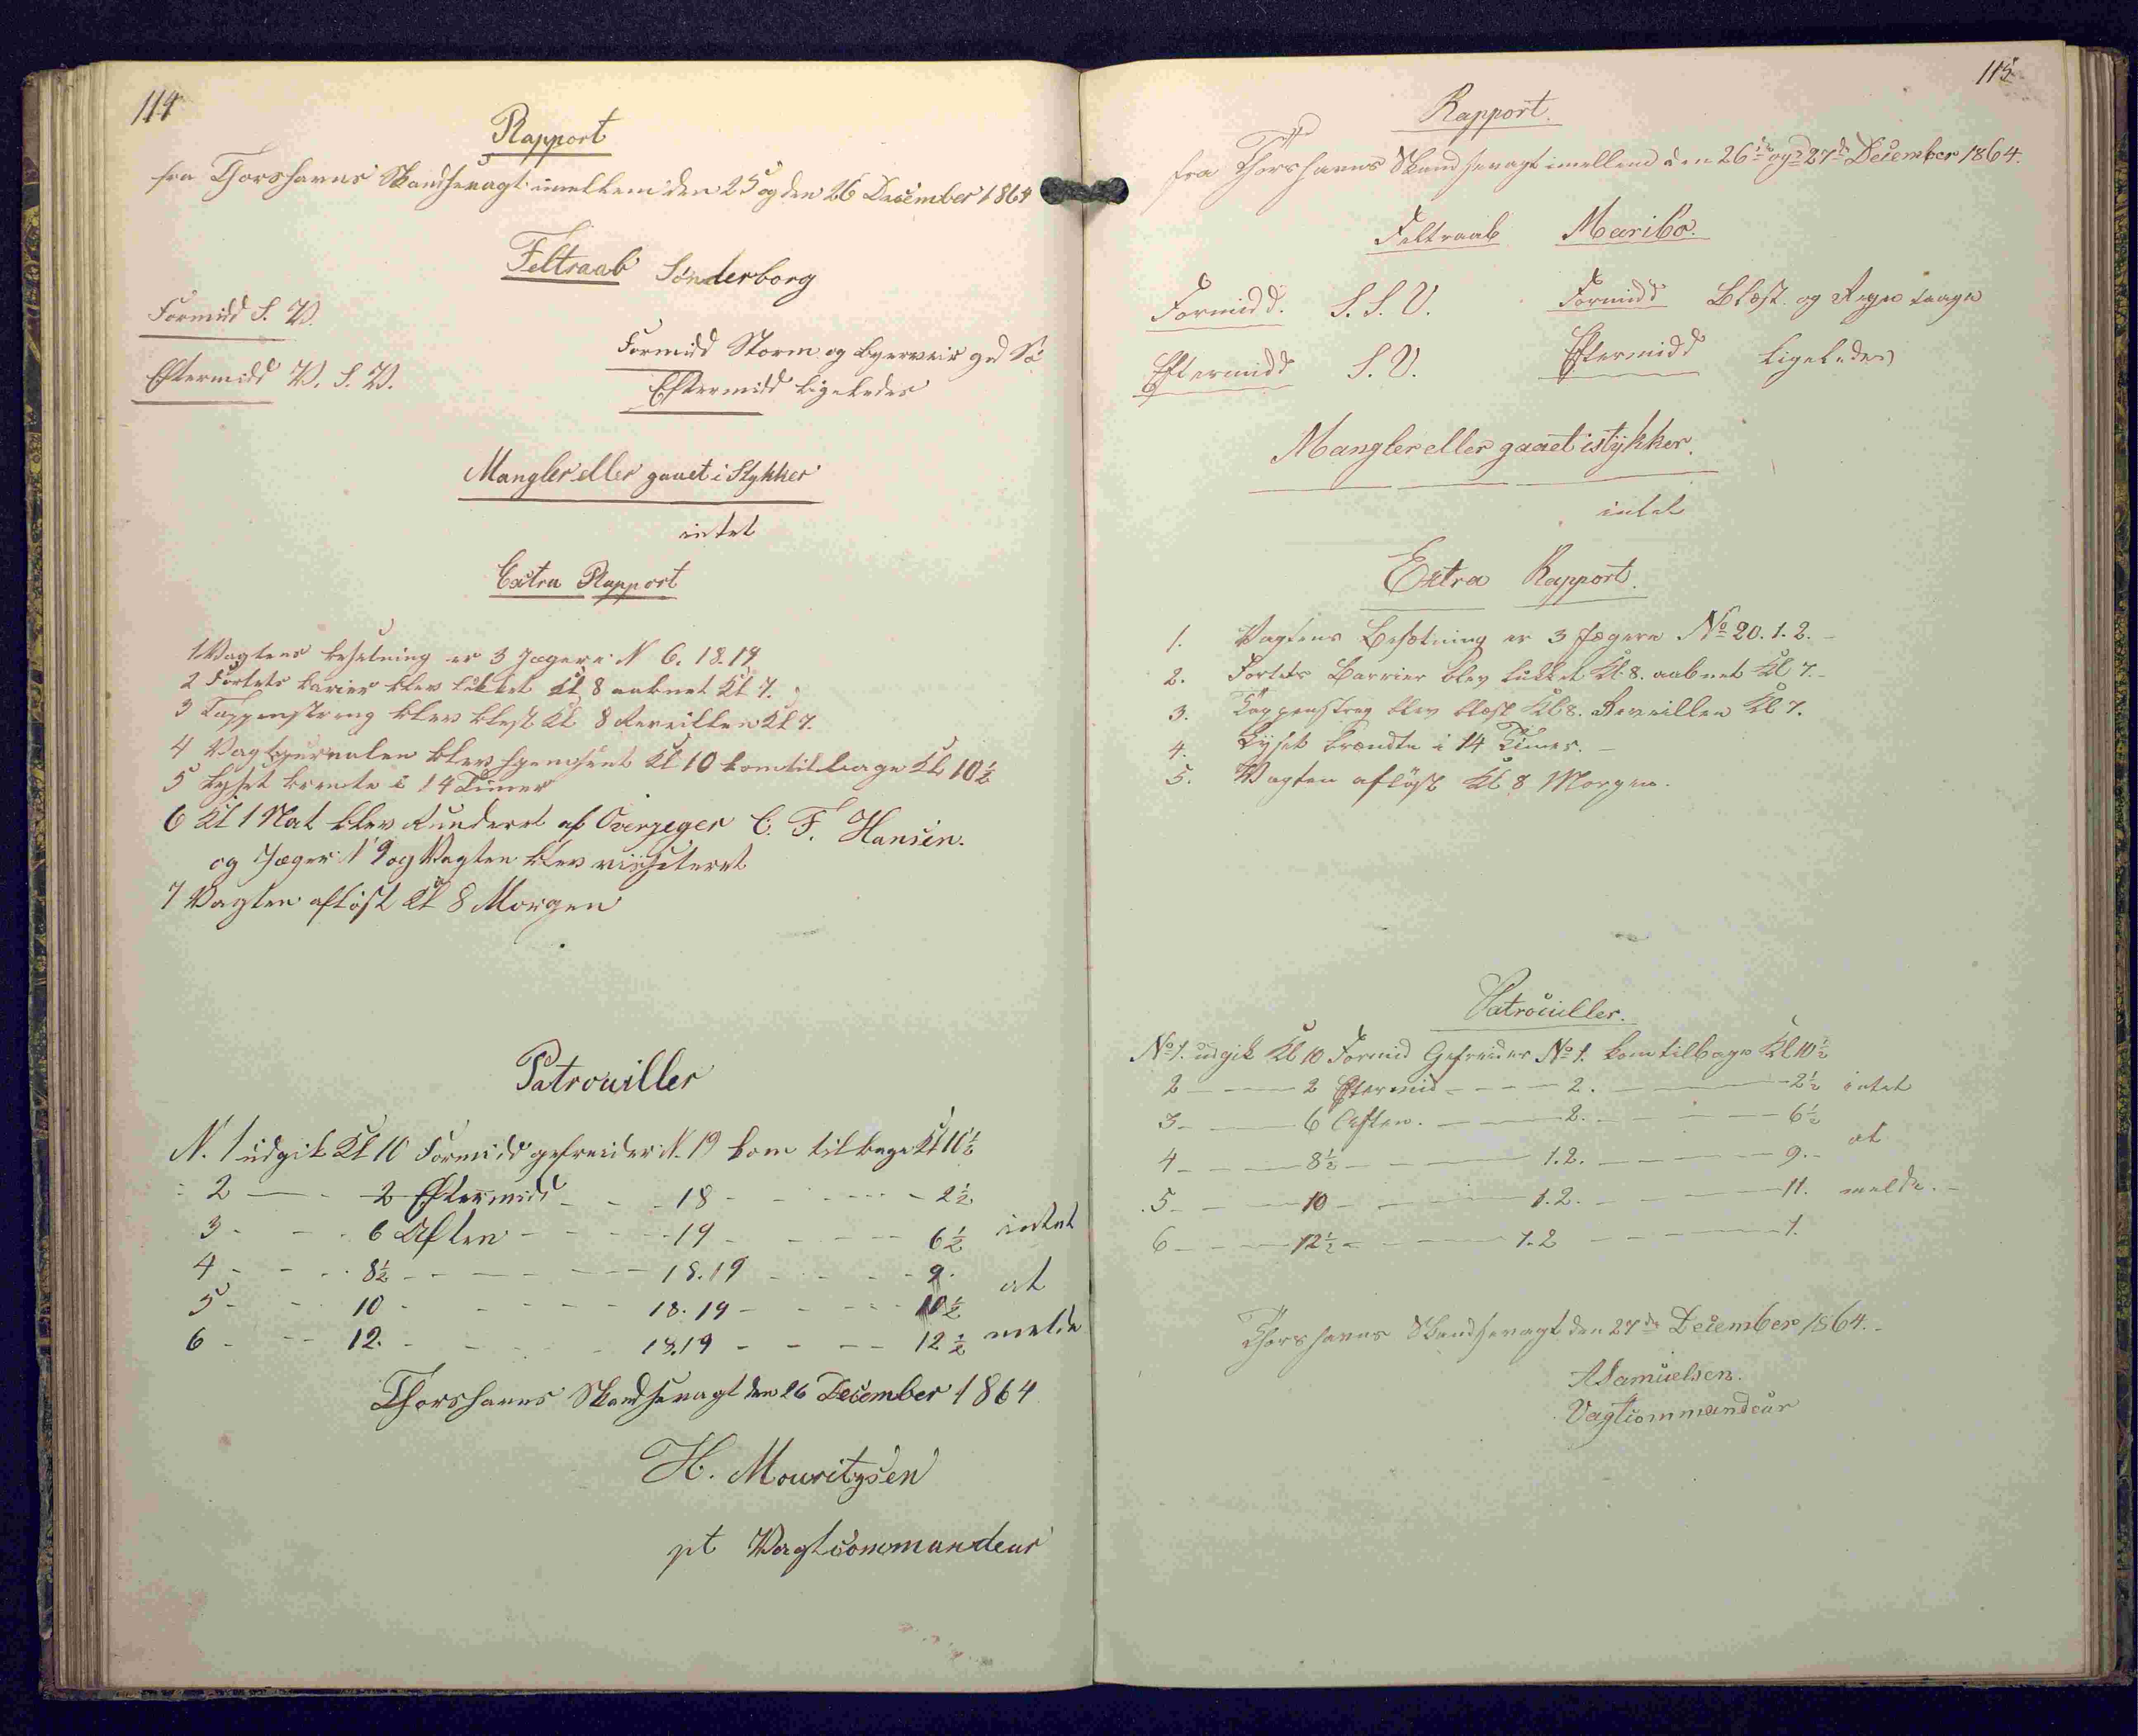 114
Rapport
fra Thorshavns Skandsevagt imellem den 25 og den 26 December 1864
Feltraab Sönderborg
Formidd S. V.
Eftermidd V. S. V.
Formidd Storm og byerveir gd Sö
Eftermidd ligeledes
Mangler eller gaaet i Stykker
intet
Extra Rapport
1 Vagtens besetning er 3 Jægere N 6. 18. 19
2 Fortets barier blev lukket Kl 8 aabnet Kl 7.
3 Tappenstreng blev blest Kl 8 Reveillen Kl 7.
4 Vagtjurnalen blev hjemsent Kl 10 kom tilbage Kl 10½
5 lyset brente i 14 Timer
6 Kl 1 Nat blev Runderet af Overjeger C. F. Hansen.
og Jæger N 9 og Vagten blev vissiteret
7 Vagten aflöst Kl 8 Morgen
Patrouiller
N. 1 udgik Kl 10 Formidd gefreider N. 19 kom tilbage Kl 10½
2 — 2 Eftermidd - - 18 - - - - 2½
3 - - 6 Aften - - - - 19 - - - - 6½ intet
4 - - - 8½ - - - - - 18. 19 - - - - 9. at
5 - - 10 - - - - - 18. 19 - - - - 10½
6 - - - 12. - - - - 18. 19 - - - - 12½ melde
Thorshavns Skandsevagt den 26 December 1864
H. Mouritzsen
pt Vagtcommandeur
115
Rapport.
fra Thorshavns Skandsevagt imellem den 26de og 27de December 1864.
Feltraab Maribo.
Formidd. S. S. V. Formidd Blæst og Regn taage
Eftermidd S. V. Eftermidd ligeledes
Mangler eller gaaet istykker.
intet
Extra Rapport.
1. Vagtens Besætning er 3 Jægere No 20. 1. 2. -
2. Fortets Barrier blev lukket Kl. 8. aabnet Kl 7. -
3. Tappenstreg blev blæst Kl 8. Reveillen Kl 7.
4. Lyset brændte i 14 Timer. -
5. Vagten aflöst Kl 8 Morgen.
Patrouiller.
No 1. udgik Kl 10 Formid Gefreider No 1. kom tilbage Kl 10½
2 - — 2 Eftermid - - - - 2. — — 2½ intet
3 - — 6 Aften. - — 2. - - — 6½
4 - - — 8½ - - — 1. 2. — - — 9. - at
5 - - — 10 - - — 1. 2. - - — 11. melde. -
6 - - — 12½ - - — 1. 2 - - - — 1.
Thorshavns Skandsevagt den 27de December 1864. -
A Samuelsen.
Vagtcommandeur